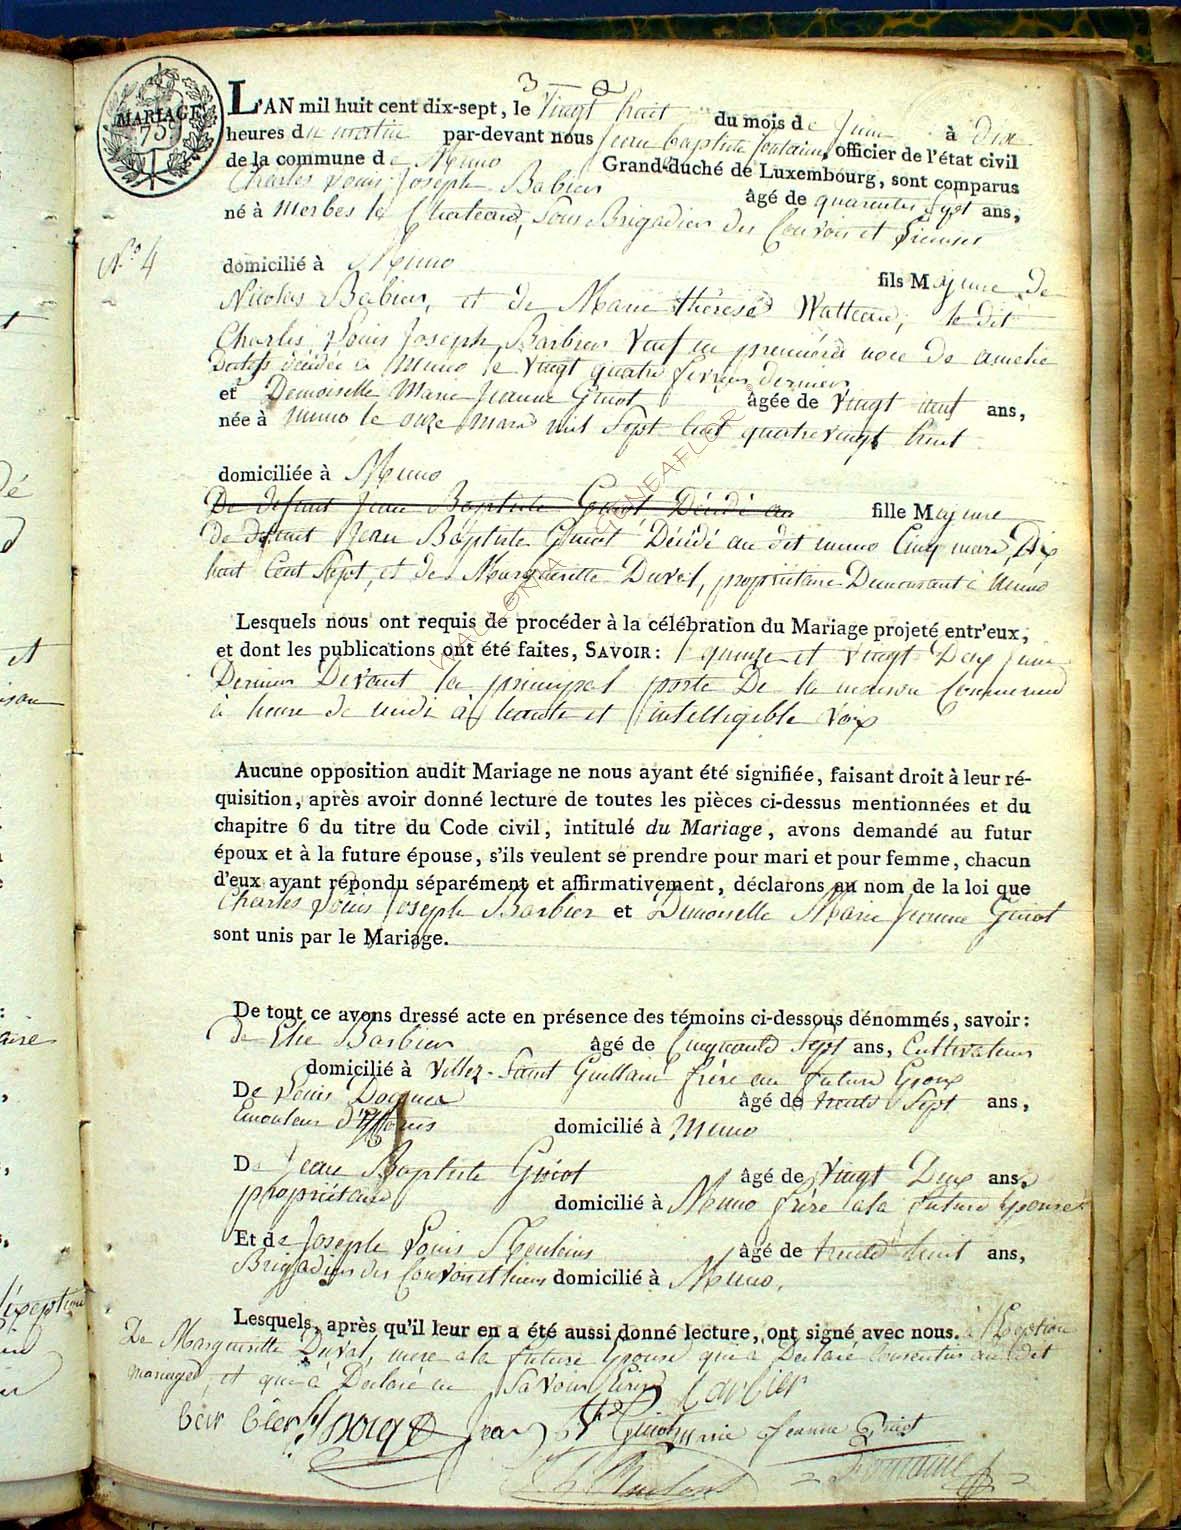 MARIAGE
759
3
L'AN mil huit cent dix-sept, le vingt huit du mois de juin à dix
heures du matin par-devant nous Jean baptiste fontaine, officier de l'état civil
de la commune de Muno Grand-duché de Luxembourg, sont comparus
Charles Louis Joseph Babier âgé de quarente Sept ans,
né à Merbes le Chateau, Sous Brigadier des Convois et
N.o 4
domicilié à Muno fils Majeure de
Nicolas Babier, et de Marie thérèse Watteau, le dit
Charles Louis Joseph Barbier Veuf en première noce de amelie
décédée a Muno le vingt quatre fevrier dernier
et Demoiselle Marie Jeanne Guiot âgée de vingt neuf ans,
née à muno le onze mars mil Sept Cent quatre vingt huit
domiciliée à Muno
De defunt Jean Baptiste Guiot Décédé au
fille Majeure
de defunt Jean Baptiste Guiot Décédé au dit muno Cinq mars Dix
huit Cent Sept, et de Marguerite Duval, propriétaire Demeurant à Muno
Lesquels nous ont requis de procéder à la célébration du Mariage projeté entr'eux,
et dont les publications ont été faites, SAVOIR: quinze et vingt Deux Juin
Dernier Devant la principal porte De la maison Commune
à heure de midi à haute et intelligible Voix
Aucune opposition audit Mariage ne nous ayant été signifiée, faisant droit à leur ré-
quisition, après avoir donné lecture de toutes les pièces ci-dessus mentionnées et du
chapitre 6 du titre du Code civil, intitulé du Mariage, avons demandé au futur
époux et à la future épouse, s'ils veulent se prendre pour mari et pour femme, chacun
d'eux ayant répondu séparément et affirmativement, déclarons au nom de la loi que
Charles Louis Joseph Barbier et Demoiselle Marie Jeanne Guiot
sont unis par le Mariage.
De tout ce avons dressé acte en présence des témoins ci-dessous dénommés, savoir:
de Elie Barbier âgé de Cinquante Sept ans, Cultivateur
domicilié à Villez-Saint Guillain frère au futur Epoux
De Louis âgé de trente Sept ans,
domicilié à Muno
De Jean Baptiste Guiot âgé de Vingt Deux ans,
propriétaire domicilié à Muno frère a la future Epouse
Et de Joseph Louis âgé de trente huit ans,
Brigadier des domicilié à Muno.
Lesquels, après qu'il leur en a été aussi donné lecture, ont signé avec nous. a l'Exeption
De Marguerite Duval, mere a la future Epouse qui a Declaré Consentir au dit
mariage, et qui a Declaré ne Savoir Ecrire
barbier
Jean Bte Guiot marie Jeanne Guiot
Fontaine
WALLONIA GENEAFLOR ©